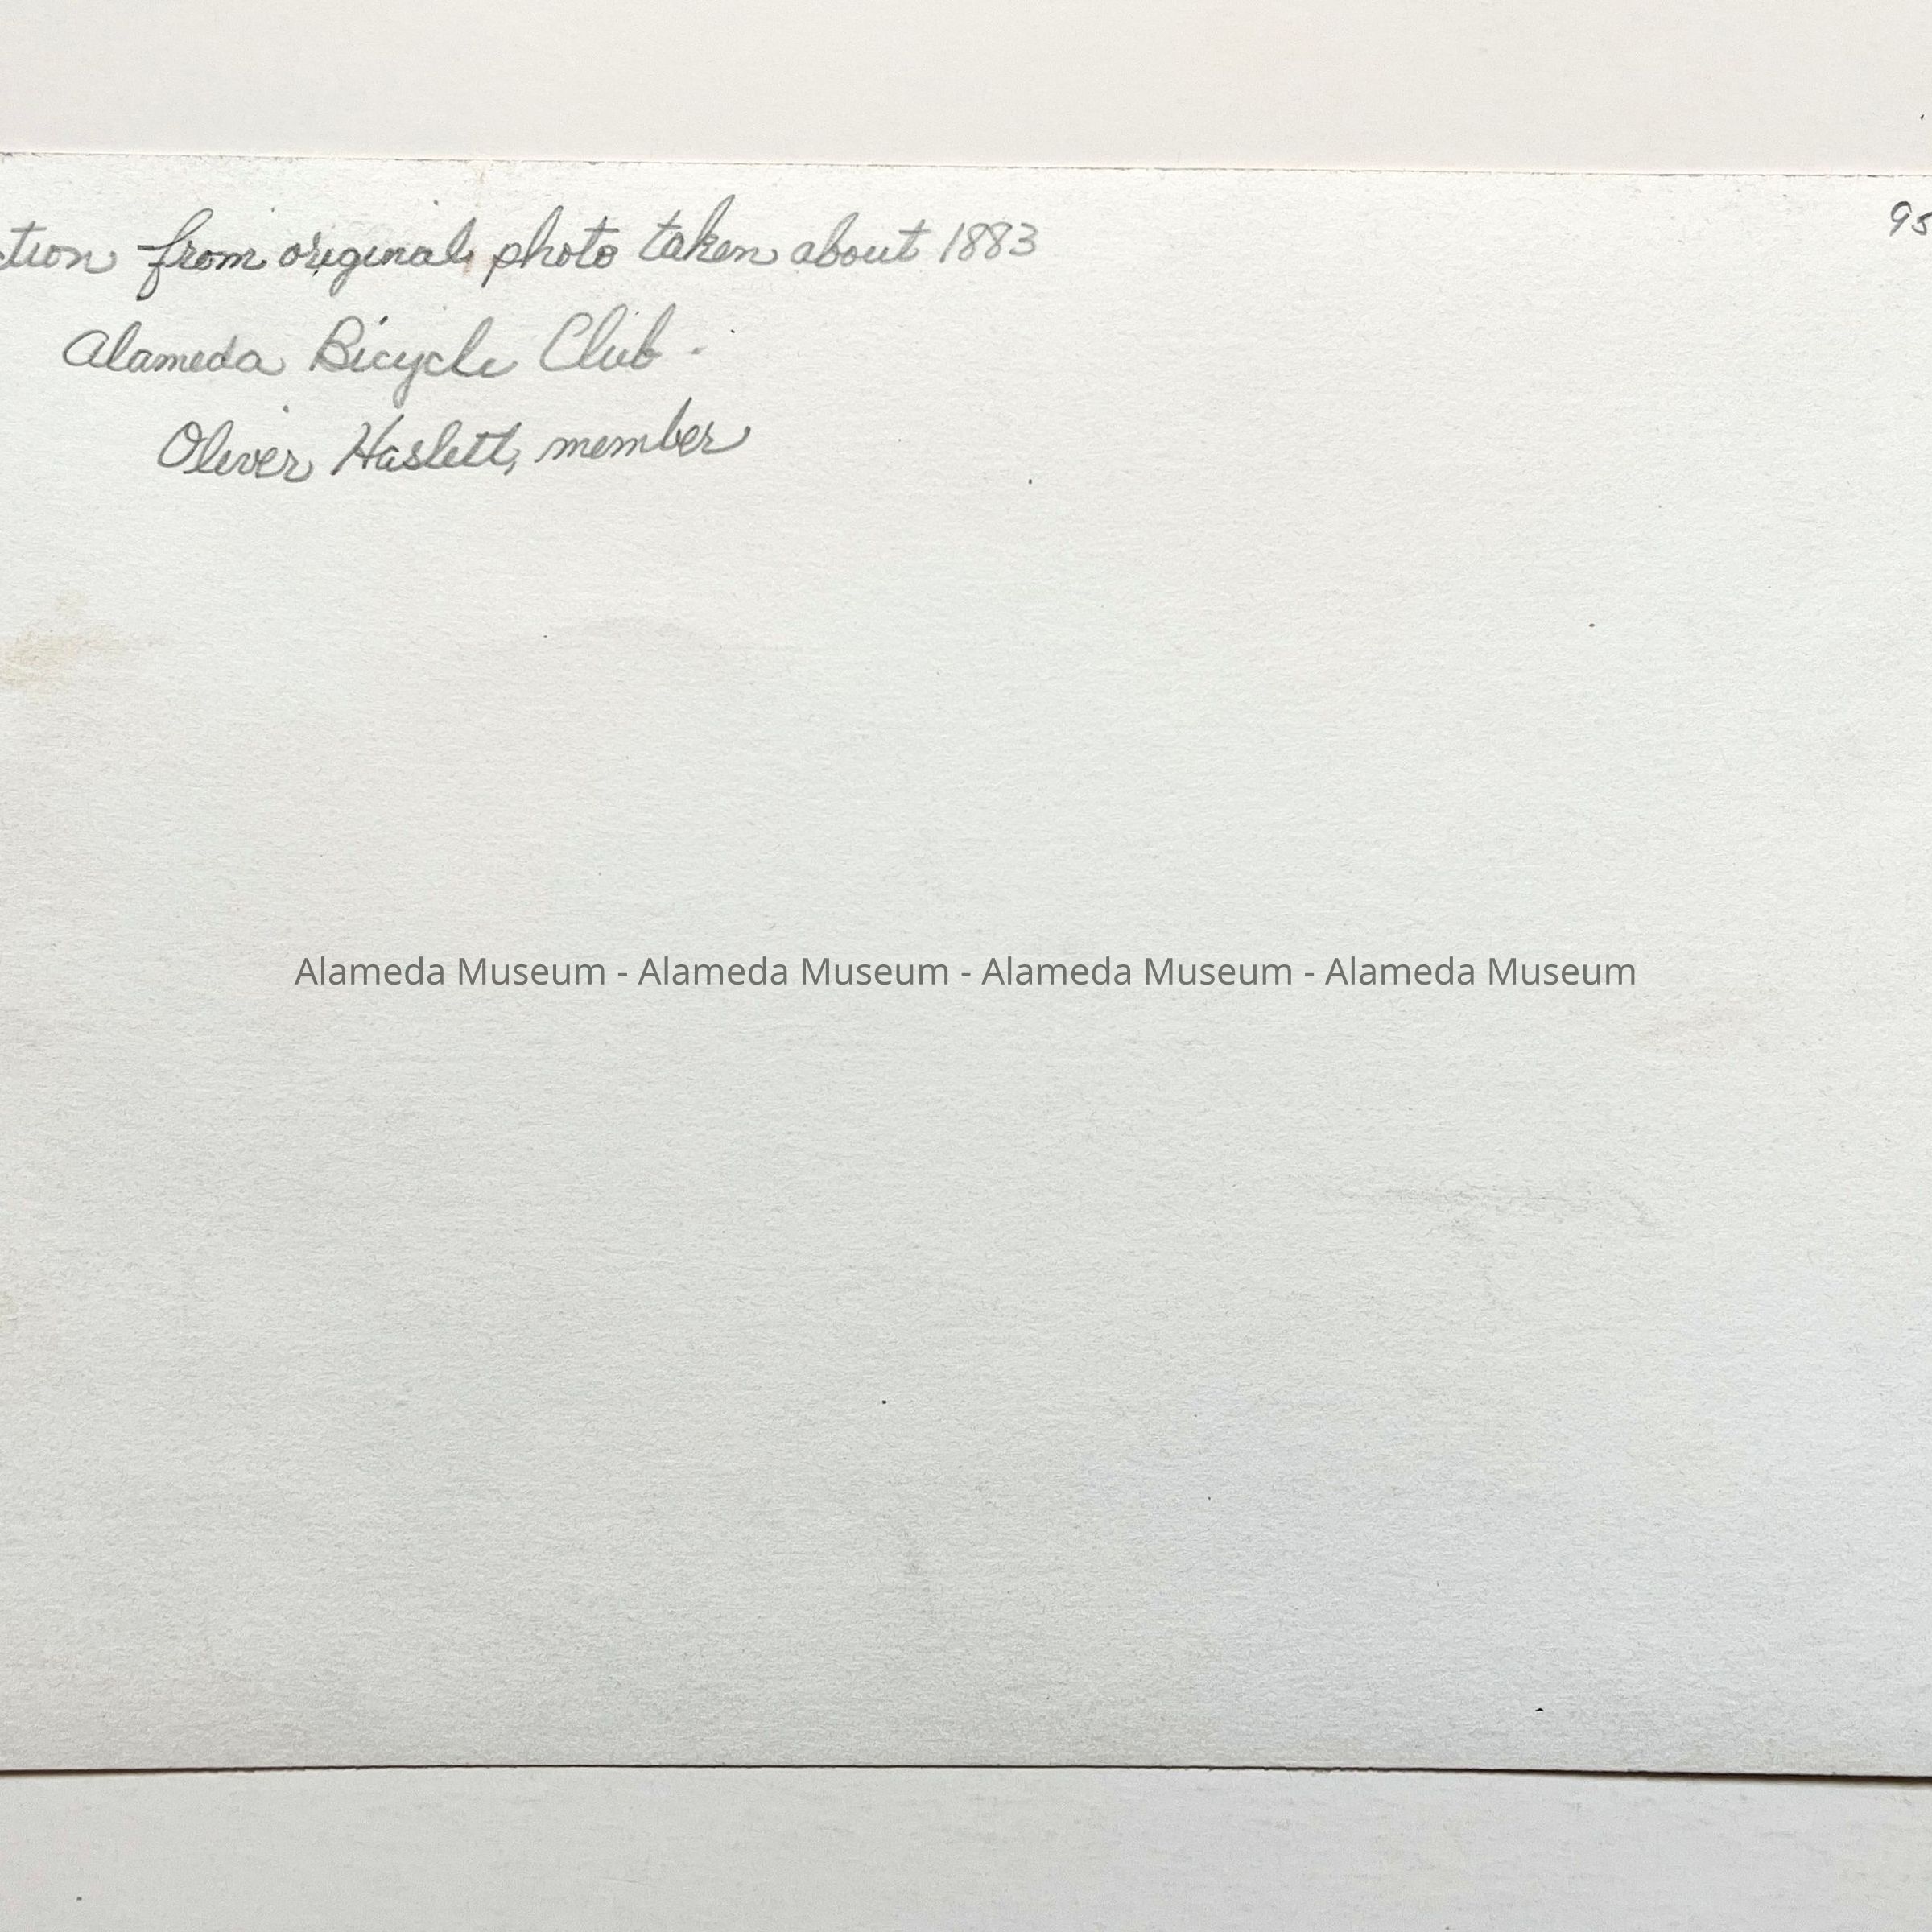 ction from original photo taken about 1883
95
Alameda Bicycle Club.
Oliver Haslett, member
Alameda Museum - Alameda Museum - Alameda Museum - Alameda Museum